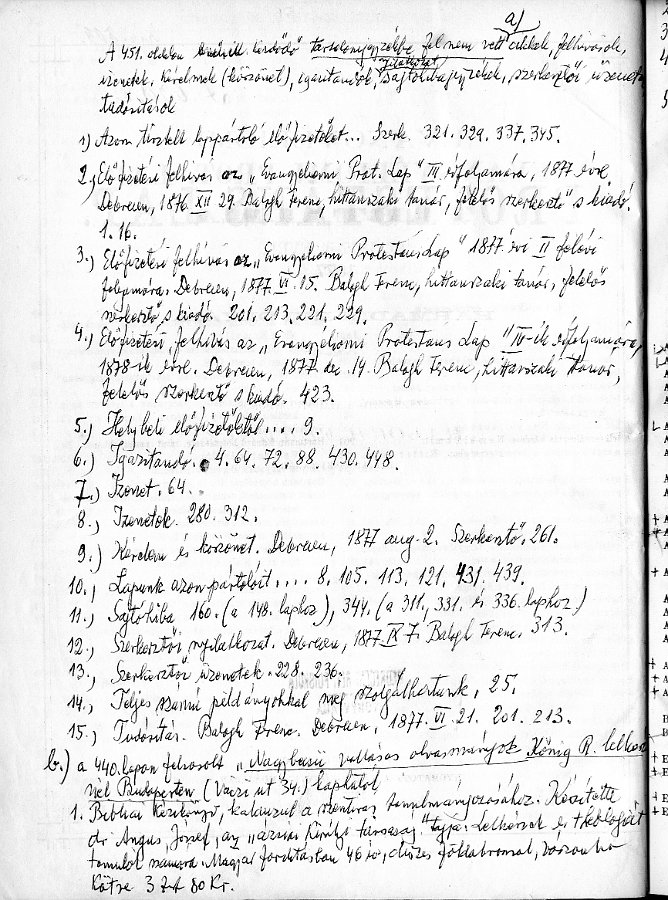 a)
A 451. oldalon kezdődő tartalomjegyzékbe fel nem vett cikkek, felhívások,
nyilatkozat
üzenetek, kérelmek (köszönet), igazítandók, sajtóhibajegyzékek, szerkesztői üzenetek
tudósítások
1) Azon tisztelt lappártoló előfizetőket... Szerk. 321. 329. 337. 345.
2.) Előfizetési felhívás az „Evangyeliomi Prot. Lap" III évfolyamára, 1877 évre.
Debrecen, 1876 XII 29. Balogh Ferenc, hittanszaki tanár, felelős szerkesztő s kiadó.
1. 16.
3.) Előfizetési felhívás az „Evangyeliomi Protestáns Lap" 1877. évi II félévi
folyamára. Debrecen, 1877. VI. 15. Balogh Ferenc, hittanszaki tanár, felelős
szerkesztő s kiadó. 201. 213. 221. 229.
4.) Előfizetési felhívás az „Evangyeliomi Protestáns Lap" IV-ik évfolyamára,
1878-ik évre. Debrecen, 1877. dec. 14. Balogh Ferenc, hittanszaki tanár,
felelős szerkesztő s kiadó. 423.
5.) Helybeli előfizetőktől.... 9.
6.) Igazítandó. 4. 64. 72. 88. 430. 448.
7.) Izenet. 64.
8.) Izenetek. 280. 312.
9.) Kérelem és köszönet. Debrecen, 1877 aug. 2. Szerkesztő. 261.
10.) Lapunk azon pártolóit.... 8. 105. 113. 121. 431. 439.
11.) Sajtóhiba 160. (a 148. laphoz), 344. (a 311., 331. és 336. laphoz)
12.) Szerkesztői nyilatkozat. Debrecen, 1877 IX 7. Balogh Ferenc. 313.
13.) Szerkesztői üzenetek. 228. 236.
14.) Teljes számú példányokkal még szolgálhatunk, 25.
15.) Tudósítás. Balogh Ferenc. Debrecen, 1877. VI. 21. 201. 213.
b.) a 440. lapon felsorolt „Nagybecsü vallásos olvasmányok König R. lelkész
nél Budapesten (Váczi út 34.) kaphatók
1. Bibliai Kézikönyv, kalauzul a szentirás tanulmányozásához. Készítette
dr. Angus József, az „ázsiai királyi társaság" tagja. Lelkészek és theologiát
tanulók számára. Magyar fordításban 46 ív, díszes földabrosszal, vászonba
kötve 3 frt 80 Kr.